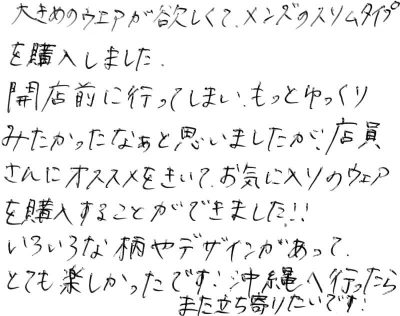 大きめのウェアが欲しくて、メンズのスリムタイプ
を購入しました.
開店前に行ってしまい、もっとゆっくり
みたかったなぁと思いましたが、店員
さんにオススメをきいて、お気に入りのウェア
を購入することができました!!
いろいろな柄やデザインがあって、
とても楽しかったです! 沖縄へ行ったら
また立ち寄りたいです!